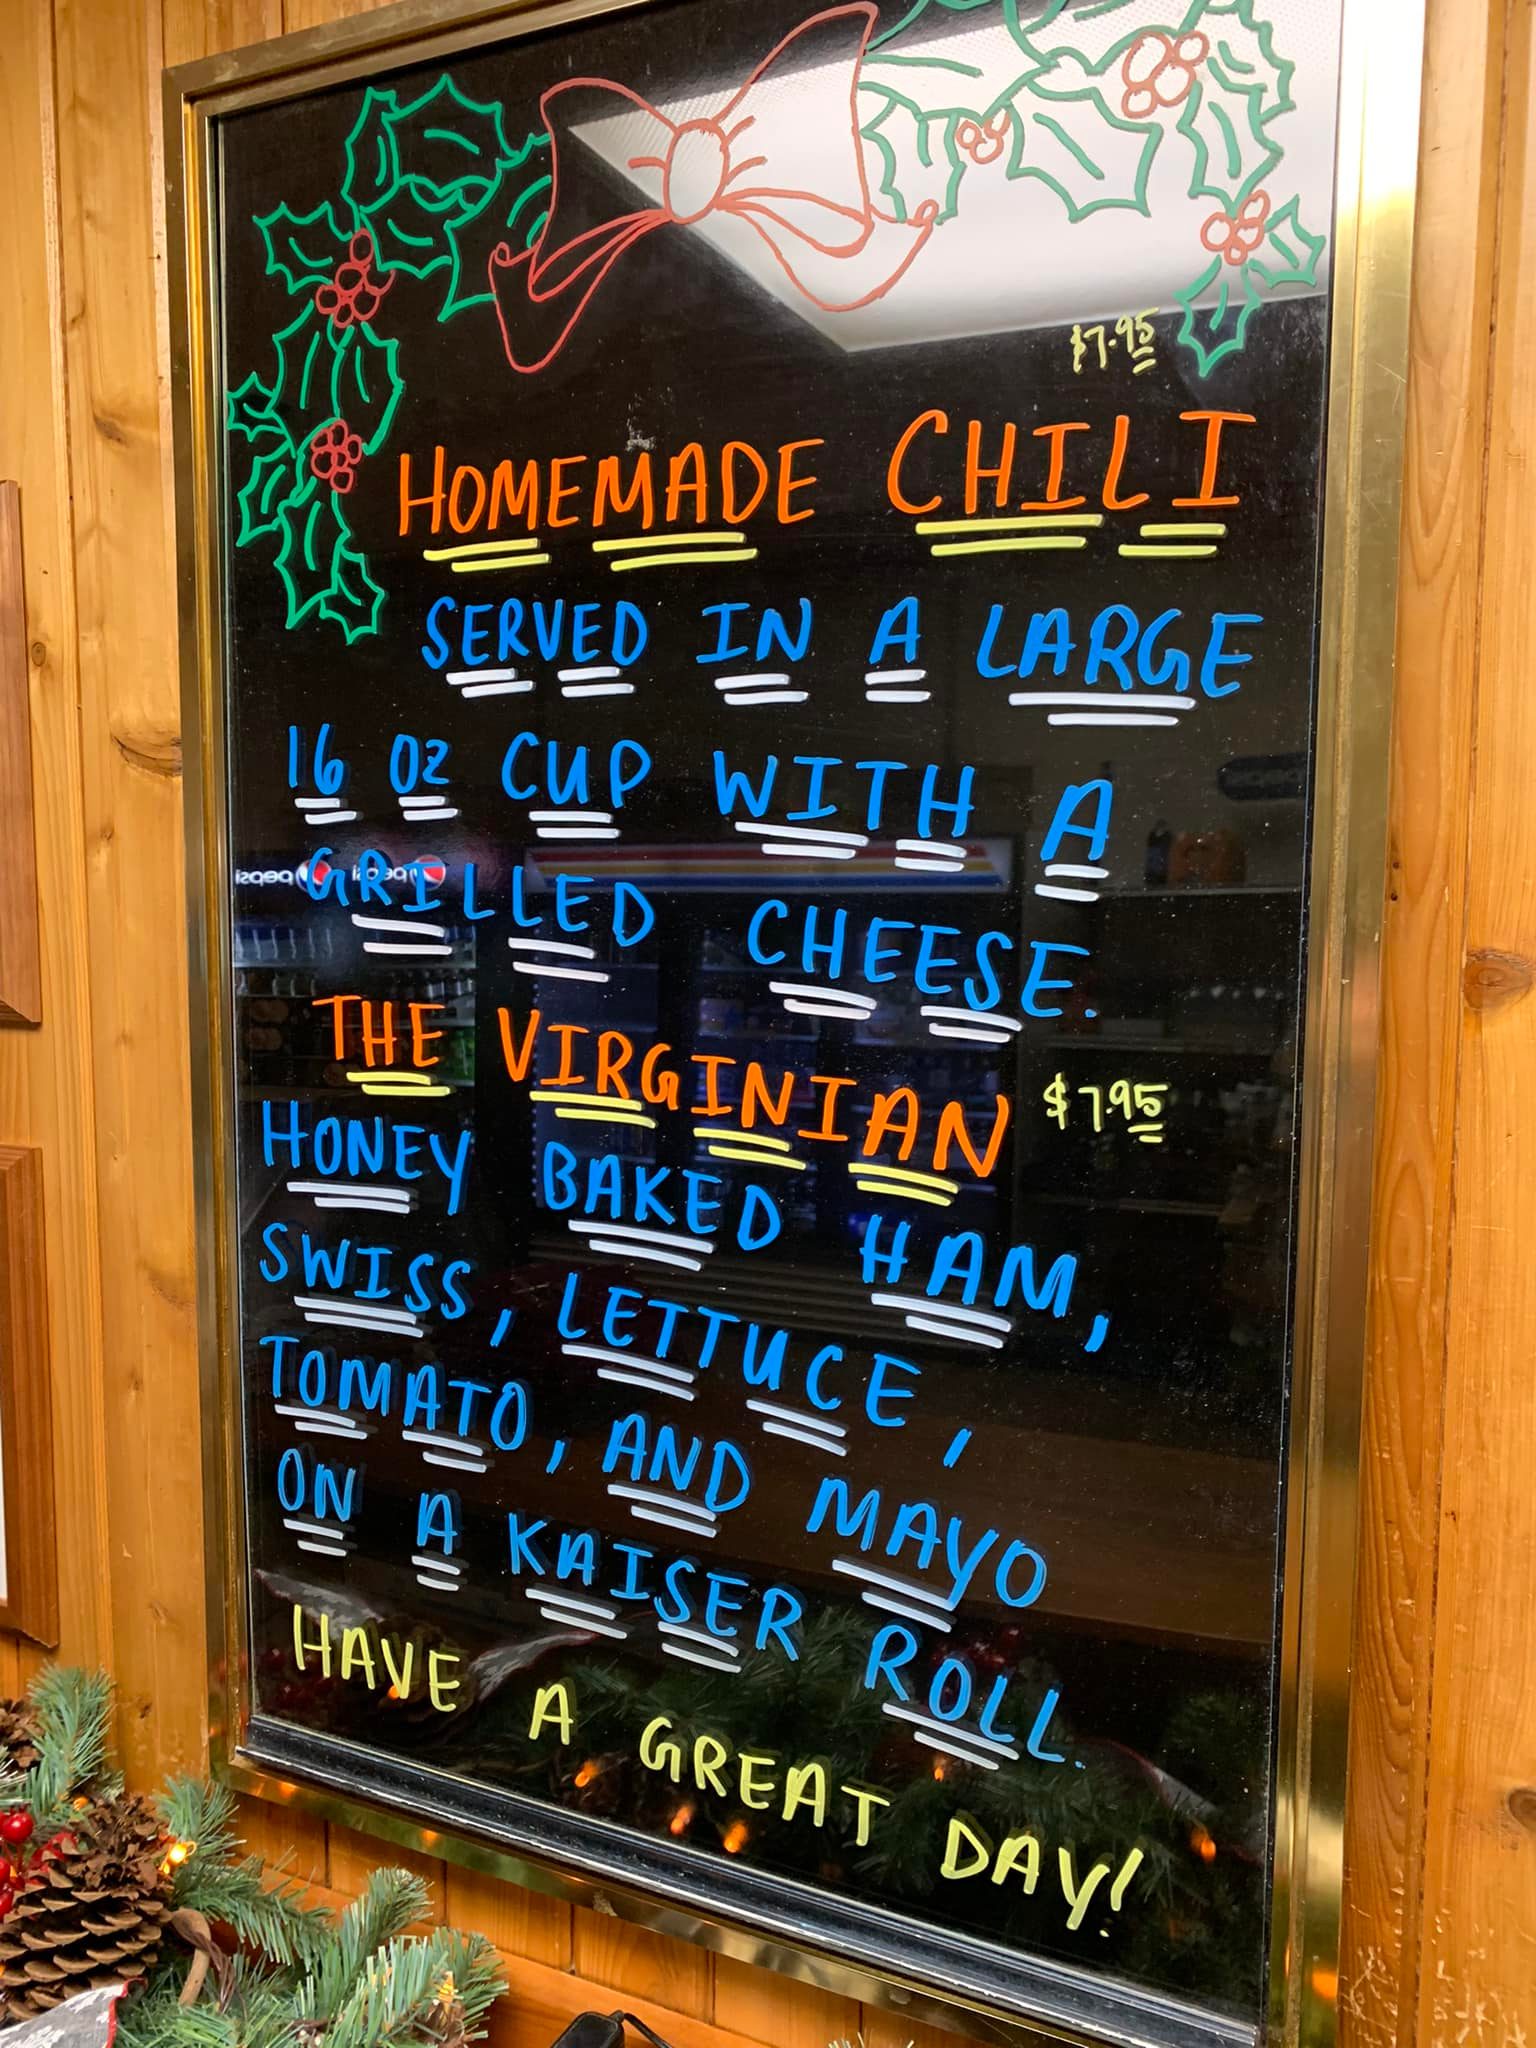 $7.95
HOMEMADE CHILI
SERVED IN A LARGE
16 OZ CUP WITH A
GRILLED CHEESE.
pepsi pepsi
THE VIRGINIAN $7.95
HONEY BAKED HAM,
SWISS, LETTUCE,
TOMATO, AND MAYO
ON A KAISER ROLL.
HAVE A GREAT DAY!